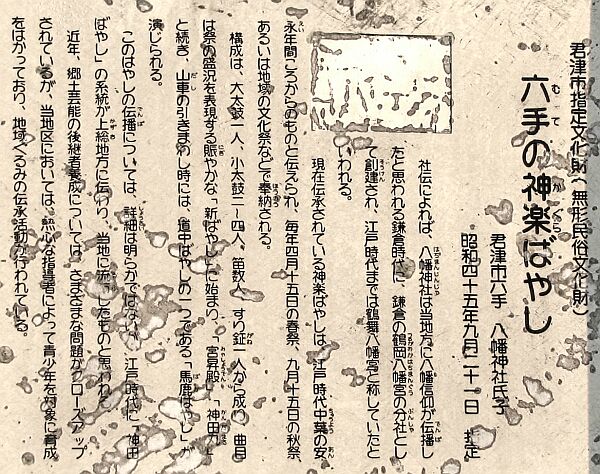 君津市指定文化財(無形民俗文化財)
六手の神楽ばやし
君津市六手 八幡神社氏子
昭和四十五年九月二十一日 指定
社伝によれば、八幡神社は当地方に八幡信仰が伝播し
たと思われる鎌倉時代に、鎌倉の鶴岡八幡宮の分社とし
て創建され、江戸時代までは鶴舞八幡宮と称していたと
いわれる。
現在伝承されている神楽ばやしは、江戸時代中葉の安
永年間ころからのものと伝えられ、毎年四月十五日の春祭、九月十五日の秋祭、
あるいは地域の文化祭などで奉納される。
構成は、大太鼓一人、小太鼓二〜四人、笛数人、すり鉦一人から成り、曲目
は祭の盛況を表現する賑やかな「新ばやし」に始まり、「宮昇殿」「神田丸」
と続き、山車の引きまわし時には、道中ばやしの一つである「馬鹿ばやし」が
演じられる。
このはやしの伝播については、詳細は明らかではないが、江戸時代に「神田
ばやし」の系統が上総地方に伝わり、当地に流したものと思われて
近年、郷土芸能の後継者養成については、さまざまな問題がクローズアップ
されているが、当地区においては、熱心な指導者によって青少年を対象に育成
をはかっており、地域ぐるみの伝承活動が行われている。